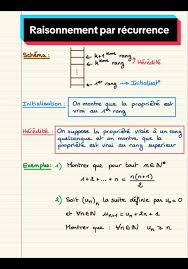 Raisonnement par récurrence
Schéma :
k+1ième rang
kième rang
Hérédité
1er rang → Initialisat°
Initialisation : On montre que la propriété est
vrai au 1er rang
Hérédité : On suppose la propriété vraie à un rang
quelconque et on montre que la
propriété est vrai au rang supérieur
Exemples : 1) Montrer que pour tout n∈ℕ*
1+2+...+n = n(n+1)/2
2) Soit (un)n la suite définie par u0=0
et ∀n∈ℕ un+1 = un+2n+1
Montrer que : ∀n∈ℕ un ≥ n